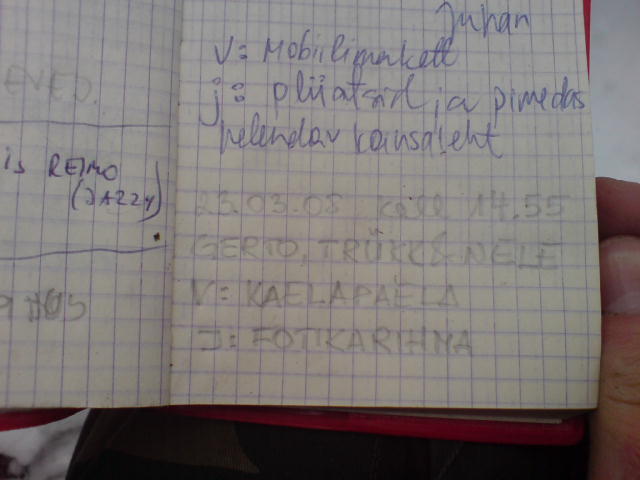 EVED.
is REIMO
(JAZZY)
Juhan
V= Mobiilimakett
j= pliiatsid ja pimedas
helendav kaisuleht
23.03.08 kell 14.55
GERTO, TRÜKK & NELE
V= KAELAPAELA
J: FOTIKARIHMA